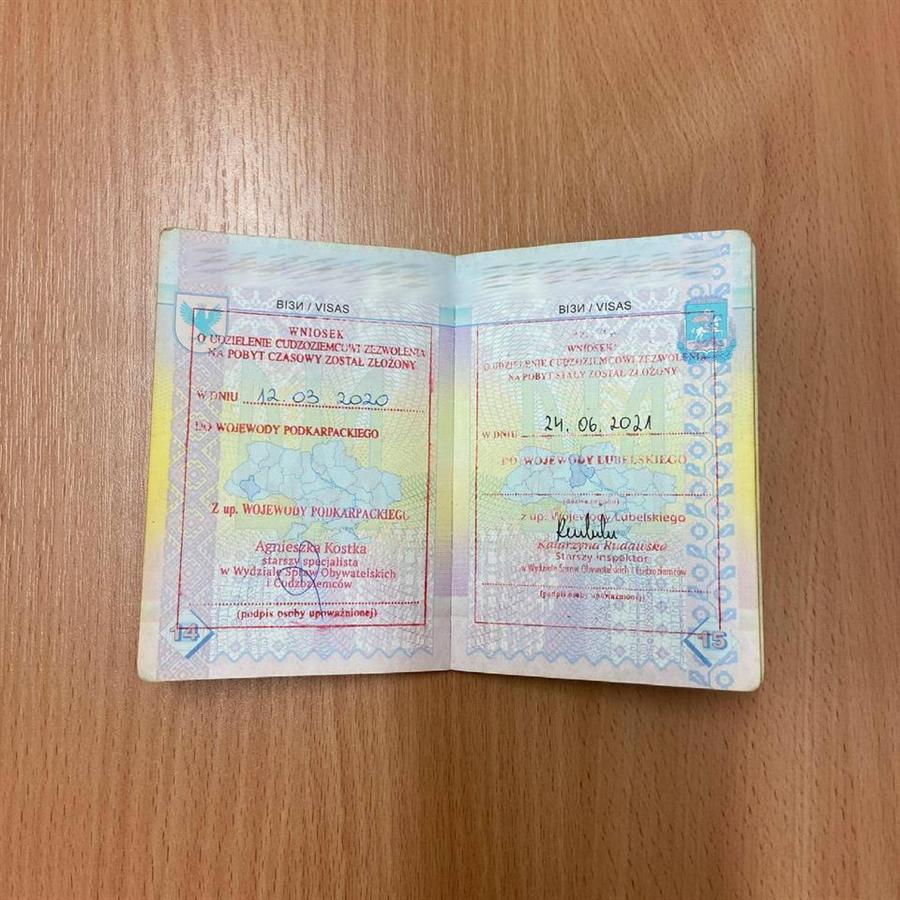 ВІЗИ / VISAS
WNIOSEK
O UDZIELENIE CUDZOZIEMCOWI ZEZWOLENIA
NA POBYT CZASOWY ZOSTAŁ ZŁOŻONY
W DNIU 12.03 2020
DO WOJEWODY PODKARPACKIEGO
Z up. WOJEWODY PODKARPACKIEGO
Agnieszka Kostka
starszy specjalista
w Wydziale Spraw Obywatelskich
i Cudzoziemców
(podpis osoby upoważnionej)
14
ВІЗИ / VISAS
WNIOSEK
O UDZIELENIE CUDZOZIEMCOWI ZEZWOLENIA
NA POBYT STAŁY ZOSTAŁ ZŁOŻONY
W DNIU 24.06.2021
DO WOJEWODY LUBELSKIEGO
(nazwa organu)
z up. Wojewody Lubelskiego
Katarzyna Rudawska
Starszy inspektor
w Wydziale Spraw Obywatelskich i Cudzoziemców
(podpis osoby upoważnionej)
15